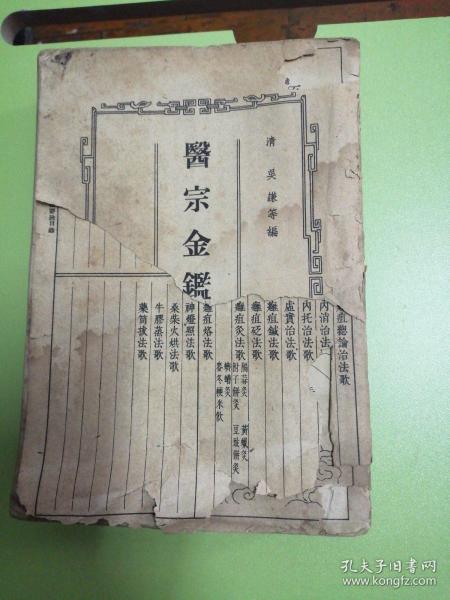 清 吳謙等編
醫宗金鑑
疽總論治法歌
內消治法
內托治法歌
虛實治法歌
癰疽鍼法歌
癰疽砭法歌
癰疽灸法歌
隔蒜灸 黃蠟灸
附子餅灸 豆豉餅灸
蠐螬灸
麥冬粳米飲
癰疽烙法歌
神燈照法歌
桑柴火烘法歌
牛膠蒸法歌
藥筒拔法歌
孔夫子旧书网
www.kongfz.com